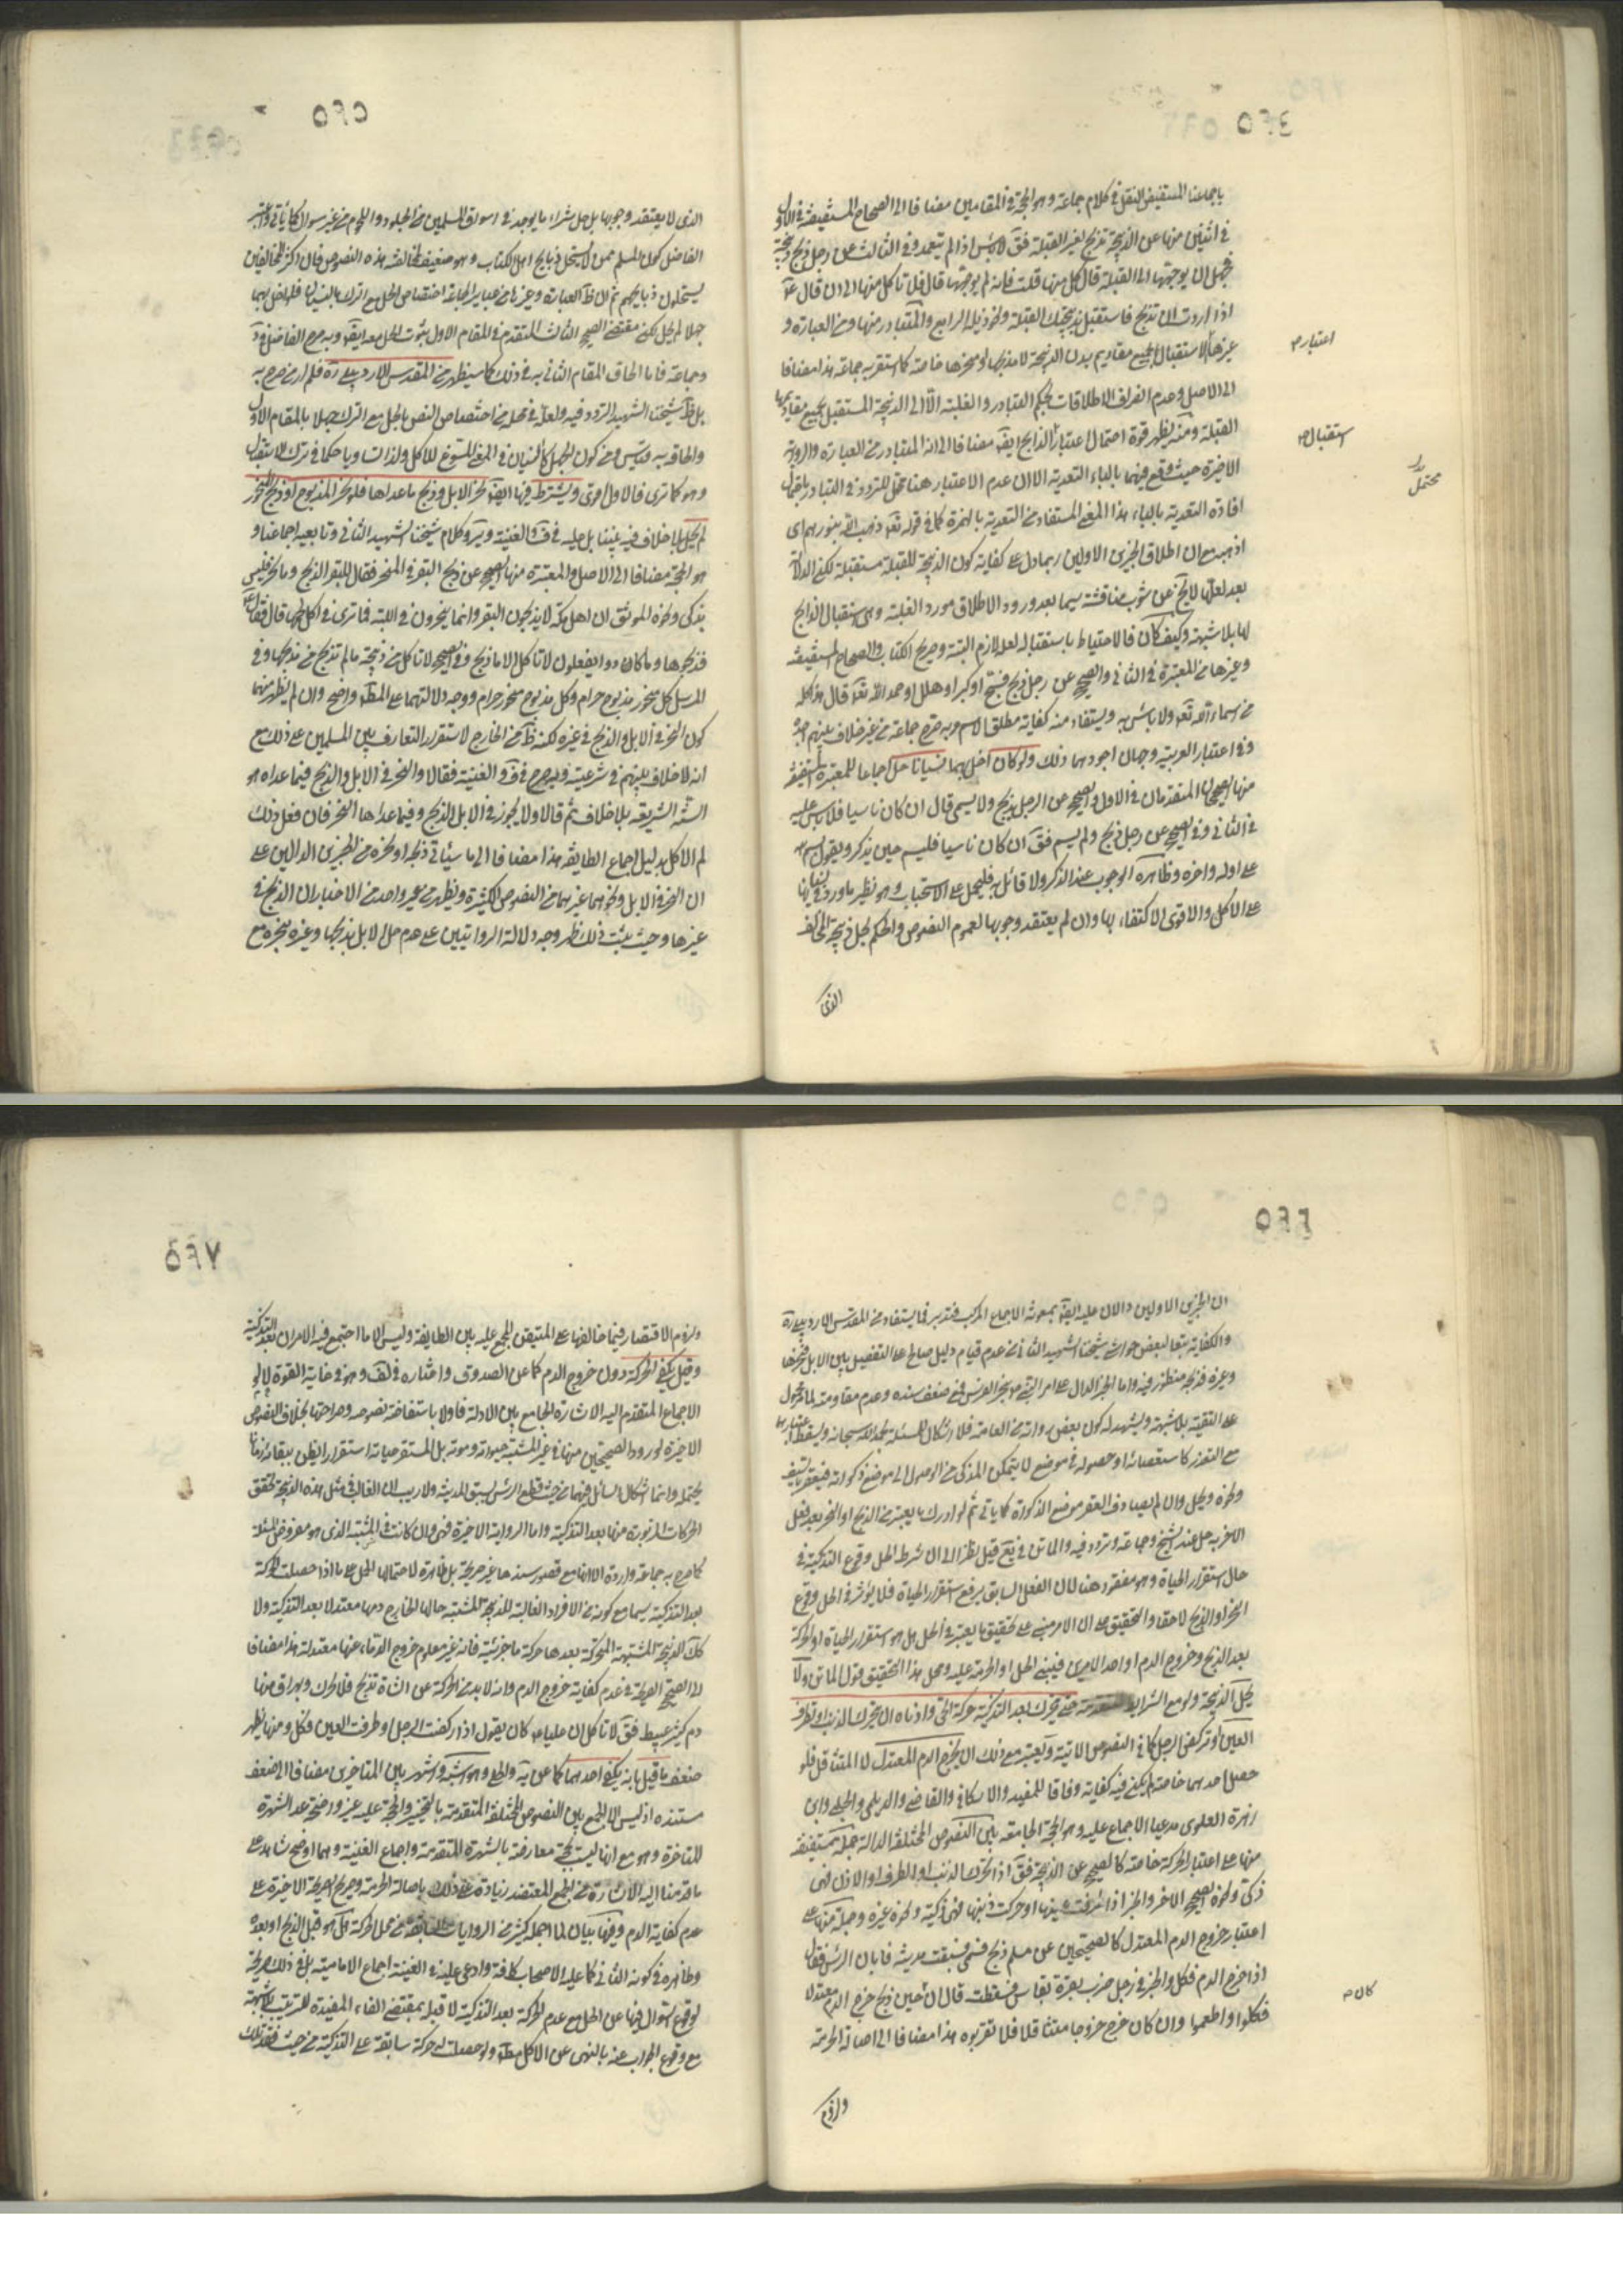 باجماعنا المستفيض النقل في كلام جماعة وهو الحجة في المقامين مضافا الى الصحاح المستفيضة في الاول
في اثنين منها عن الذبيحة تذبح لغير القبلة فق لا بأس اذا لم يتعمد وفي الثالث عن رجل ذبح ذبيحة
فجهل ان يوجهها الى القبلة قال كل منها قلت فانه لم يوجهها قال فلا تاكل منها الى ان قال ع
اذا اردت ان تذبح فاستقبل بذبيحتك القبلة ونحو ذيله الرابع والمتبادر منها ومن العبارة و
غيرها الاستقبال بجميع مقاديم بدن الذبيحة لا مذبحها ومنحرها خاصة كما استقر به جماعة هذا مضافا
الى الاصل وعدم انصراف الاطلاقات بحكم التبادر والغلبة الا الى الذبيحة المستقبل بجميع مقاديمها
القبلة ومنه يظهر قوة احتمال اعتبار الذابح ايضا مضافا الى انه المتبادر من العبارة والرواية
الاخيرة حيث وقع فيهما بالباء التعدية الا ان عدم الاعتبار هنا محتمل للتردد في التبادر باحتمال
افادة التعدية بالباء هذا المعنى المستفاد من التعدية بالهمزة كما في قوله تعه ذهب الله بنورهم اى
اذهبه مع ان اطلاق الخبرين الاولين ربما دل على كفاية كون الذبيحة للقبلة مستقبلة لكن الدلالة
بعد لعلها لا يخ عن شوب مناقشة سيما بعد ورود الاطلاق مورد الغلبة وهى استقبال الذابح
لها بلا شبهة وكيف كان فالاحتياط باستقباله لعله لازم البتة وصريح الكتاب والصحاح المستفيضة
وغيرها من المعتبرة في الثاني والصحيح عن رجل ذبح فسبح او كبر او هلل او حمد الله تعه قال هذا كله
من اسماء الله تعه ولا بأس به ويستفاد منه كفاية مطلق الاسم وبه صرح جماعة من غير خلاف بينهم اجده
وفي اعتبار العربية وجهان اجودهما ذلك ولو كان اخل بهما نسيانا حل اجماعا للمعتبرة المستفيضة
منها الصحيحان المتقدمان في الاول والصحيح عن الرجل يذبح ولا يسمى قال ان كان ناسيا فلا بأس عليه
في الثاني وفي الصحيح عن رجل ذبح ولم يسم فق ان كان ناسيا فليسم حين يذكر ويقول بسم الله
على اوله واخره وظاهره الوجوب عند الذكر ولا قائل به فليحمل على الاستحباب وهو نظير ما ورد في نسيانها
على الاكل والاقوى الاكتفاء بها وان لم يعتقد وجوبها لعموم النصوص والحكم بحل ذبيحة المخالف
الذى
اعتبار
استقبال
محتمل
٥٦٥
الذى لا يعتقد وجوبها بل حل شراء ما يوجد في اسواق المسلمين من الجلود واللحوم من غير سؤال كما ياتى واعتبر
الفاضل كون المسلم ممن لا يستحل ذبايح اهل الكتاب وهو ضعيف لمخالفته هذه النصوص فان اكثر المخالفين
يستحلون ذبايحهم ثم ان ظ العبارة وغيرها من عباير الجماعة اختصاص الحل مع الترك بالنسيان فلو اخل بهما
جهلا لم يحل لكن مقتضى الصحيح الثالث المتقدم في المقام الاول ثبوت الحل معه ايضا وبه صرح الفاضل في
وجماعة فاما الحاق المقام الثاني به في ذلك كما سيظهر من المقدس الاردبيلى ره فلم ار من صرح به
بل ظ شيخنا الشهيد التردد فيه ولعله في محله من اختصاص النص بالحل مع الترك جهلا بالمقام الاول
والحاقه به قياس ومن كون الجهل كالنسيان في المعنى المسوغ للاكل ولذا تساويا حكما في ترك الاستقبال
وهو كما ترى فالاول اقوى ويشترط فيها ايضا نحر الابل وذبح ما عداها فلو نحر المذبوح او ذبح المنحور
لم يحل بلا خلاف فيه بيننا بل عليه في ف والغنية وير وكلام شيخنا الشهيد الثاني وتابعيه اجماعنا و
هو الحجة مضافا الى الاصل والمعتبرة منها الصحيح عن ذبح البقر في المنحر فقال للبقر الذبح وما نحر فليس
بذكى ونحوه الموثق ان اهل مكة لا يذبحون البقر وانما ينحرون في اللبة فما ترى في اكل لحمها قال فقال ع
فذبحوها وما كادوا يفعلون لا تاكل الا ما ذبح وفي الصحيح لا تاكل من ذبيحة ما لم تذبح من مذبحها وفي
المرسل كل منحور مذبوح حرام وكل مذبوح منحور حرام ووجه دلالتهما على المطه واضح وان لم يظهر منهما
كون النحر في الابل والذبح في غيره لكنه ظ من الخارج لاستقرار التعارف بين المسلمين على ذلك مع
انه لا خلاف بينهم في شرعيته وبه صرح في ف والغنية فقالا والنحر في الابل والذبح فيما عداه هو
السنة الشريفة بلا خلاف ثم قالا ولا يجوز في الابل الذبح وفيما عداها النحر فان فعل ذلك
لم الاكل بدليل اجماع الطايفة هذا مضافا الى ما سياتى ذبحه او نحره من الخبرين الدالين على
ان النحر في الابل ونحوهما غيرهما من النصوص الكثيرة ويظهر من غير واحد من الاخبار ان الذبح في
غيرها وحيث ثبت ذلك ظهر وجه دلالة الروايتين على عدم حل الابل بذبحها وغيره بنحره مع
٥٦٦
ان الخبرين الاولين دالان عليه ايضا بمعونة الاجماع المركب فتدبر فما يستفاد من المقدس الاردبيلى ره
والكفاية تبعا لبعض حواشى شيخنا الشهيد الثاني من عدم قيام دليل صالح على التفصيل بين الابل فنحرها
وغيره فذبحه منظور فيه واما الخبر الدال على امر النبى ص بنحر الفرس فمع ضعف سنده وعدم مقاومته لما مر محمول
على التقية بلا شبهة ويشهد له كون بعض رواته من العامة فلا اشكال في المسئلة بحمد الله سبحانه ويسقط اعتبارها
مع التعذر كاستعصائه او حصوله في موضع لا يتمكن المذكى من الوصول الى موضع ذكوته فيعقر بالسيف
ونحوه ويحل وان لم يصادف العقر موضع الذكوة كما ياتى ثم لو ادرك ما يعتبر من الذبح او النحر بعد فعل
الاخر به حل عند الشيخ وجماعة وتردد فيه والماتن في يع قيل نظرا الى ان شرط الحل وقوع التذكية في
حال استقرار الحياة وهو مفقود هنا لان الفعل السابق يرفع استقرار الحياة فلا يؤثر في الحل وقوع
النحر او الذبح لاحقا والتحقيق ان الامر مبنى على تحقيق ما يعتبر في الحل هل هو استقرار الحياة او الحركة
بعد الذبح وخروج الدم او احد الامرين فيبنى الحل او الحرمة عليه ومحل هذا التحقيق قول الماتن ولا
يحل الذبيحة ولو مع الشرايط المتقدمة حتى يتحرك بعد التذكية حركة الحى وادناه ان يتحرك الذنب او تطرف
العين او تركض الرجل كما في النصوص الاتية ويعتبر مع ذلك ان يخرج الدم المعتدل لا المتثاقل فلو
حصل احدهما خاصة لم يكف فيه كفاية وفاقا للمفيد والاسكافى والقاضى والديلمى والحلبى وابن
زهرة العلوى مدعيا الاجماع عليه وهو الحجة الجامعة بين النصوص المختلفة الدالة جملة مستفيضة
منها على اعتبار الحركة خاصة كالصحيح عن الذبيحة فق اذا تحرك الذنب او الطرف او الاذن فهى
ذكى ونحوه الصحيح الاخر والخبر اذا طرفت عينها او حركت ذنبها فهى ذكية ونحوه غيره وجملة منها على
اعتبار خروج الدم المعتدل كالصحيحين عن مسلم ذبح فسمى فسبقت مديته فابان الرأس فقال
اذا خرج الدم فكل والخبر في رجل ضرب بقرة بفاس فسقطت قال ان حين ذبح خرج الدم معتدلا
فكلوا واطعموا وان كان خرج خروجا متثاقلا فلا تقربوه هذا مضافا الى اصالة الحرمة
ولزوم
كان
٥٦٧
ولزوم الاقتصار فيما خالفها على المتيقن المجمع عليه بين الطايفة وليس الا ما اجتمع فيه الامران بعد التذكية
وقيل يكفى الحركة دون خروج الدم كما عن الصدوق واختاره في لف وهو في غاية القوة لولا
الاجماع المتقدم اليه الاشارة الجامع بين الادلة فاولا باستفاضة نصوصه وصراحتها بخلاف النصوص
الاخيرة لورود الصحيحين منها في غير المشتبه حيوته وموته بل المستقر حياته استقرار الظن ببقائه زمانا
يحتمله وانما اشكال السائل فيهما من حيث قطع الرأس بسبق المدية ولا ريب ان الغالب في مثل هذه الذبيحة تحقق
الحركات المزبورة منها بعد التذكية واما الرواية الاخيرة فهى وان كانت في المشتبه الذى هو مفروض المسئلة
كما صرح به جماعة واردة الا انها مع قصور سندها غير صريحة بل ظاهرة لاحتمالها الحمل على ما اذا حصلت الحركة
بعد التذكية سيما مع كونه من الافراد الغالبة للذبيحة المشتبه حالها الخارج دمها معتدلا بعد التذكية ولا
كك الذبيحة المشتبهة المتحركة بعدها حركة ما جزئية فانه غير معلوم خروج الدماء عنها معتدلة هذا مضافا
الى الصحيح الصريح في عدم كفاية خروج الدم وانه لا بد من الحركة عن الشاة تذبح فلا تحرك ويهراق منها
دم كثير عبيط فق لا تاكل ان عليا ع كان يقول اذا ركضت الرجل او طرفت العين فكل ومنها يظهر
ضعف ما قيل بانه يكفى احدهما كما عن ية والحلى وهو اشبه واشهر بين المتاخرين مضافا الى ضعف
مستنده اذ ليس الا الجمع بين النصوص المختلفة المتقدمة بالتخيير والحجة عليه غير واضحة عدا الشهرة
المتاخرة وهو مع انها ليست بحجة معارضة بالشهرة المتقدمة واجماع الغنية وهما اوضح شاهد على
ما قدمنا اليه الاشارة من الجمع المعتضد زيادة على ذلك باصالة الحرمة وصريح الصحيحة الاخيرة على
عدم كفاية الدم وفيها بيان لما اجمله كثير من الروايات السابقة من محل الحركة اهو قبل الذبح او بعده
وظاهره في كونه الثاني كما عليه الاصحاب كافة وادعى عليه في الغنية اجماع الامامية بلغ ذلك صريحة
لوقوع السؤال فيها عن الحل مع عدم الحركة بعد التذكية لا قبل بمقتضى الفاء المفيدة للترتيب بلا شبهة
مع وقوع الجواب عنه بالنهى عن الاكل مطه ولو حصلت له حركة سابقة على التذكية من حيث